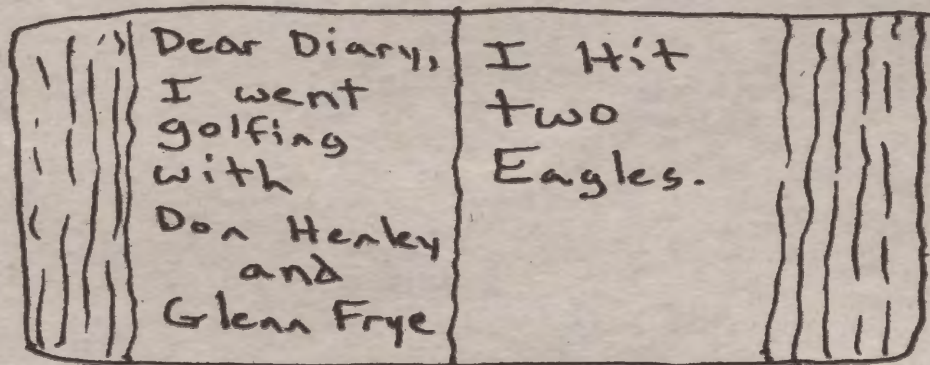 Dear Diary,
I went
golfing
with
Don Henley
and
Glenn Frye
I Hit
two
Eagles.